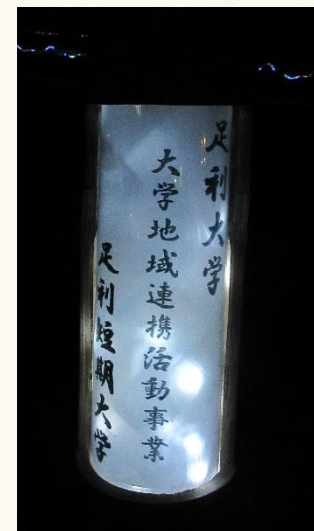 足利大学
大学地域連携活動事業
足利短期大学